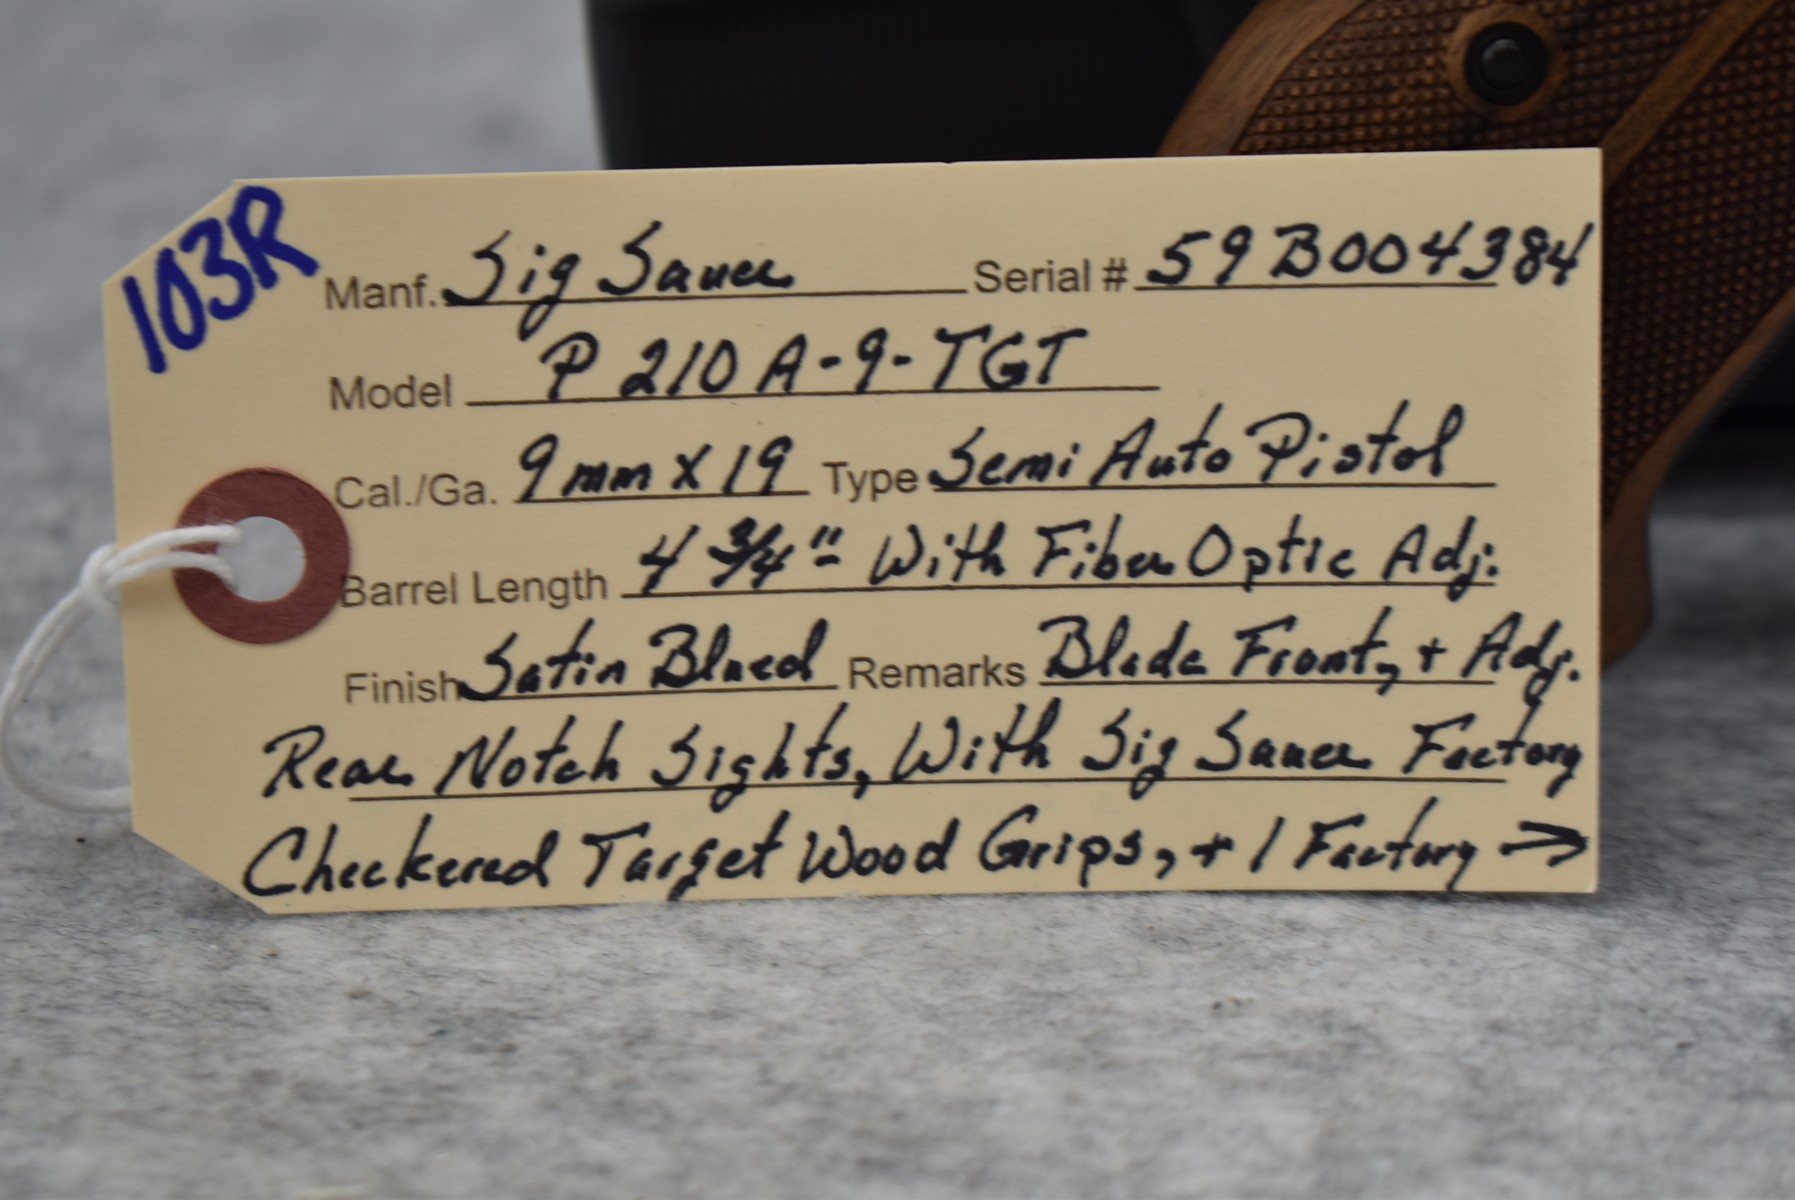 103R
Manf. Sig Sauer Serial # 59B004384
Model P210A-9-TGT
Cal./Ga. 9mm X 19 Type Semi Auto Pistol
Barrel Length 4 3/4" With Fiber Optic Adj.
Finish Satin Blued Remarks Blade Front, + Adj.
Rear Notch Sights, With Sig Sauer Factory
Checkered Target Wood Grips, + 1 Factory →